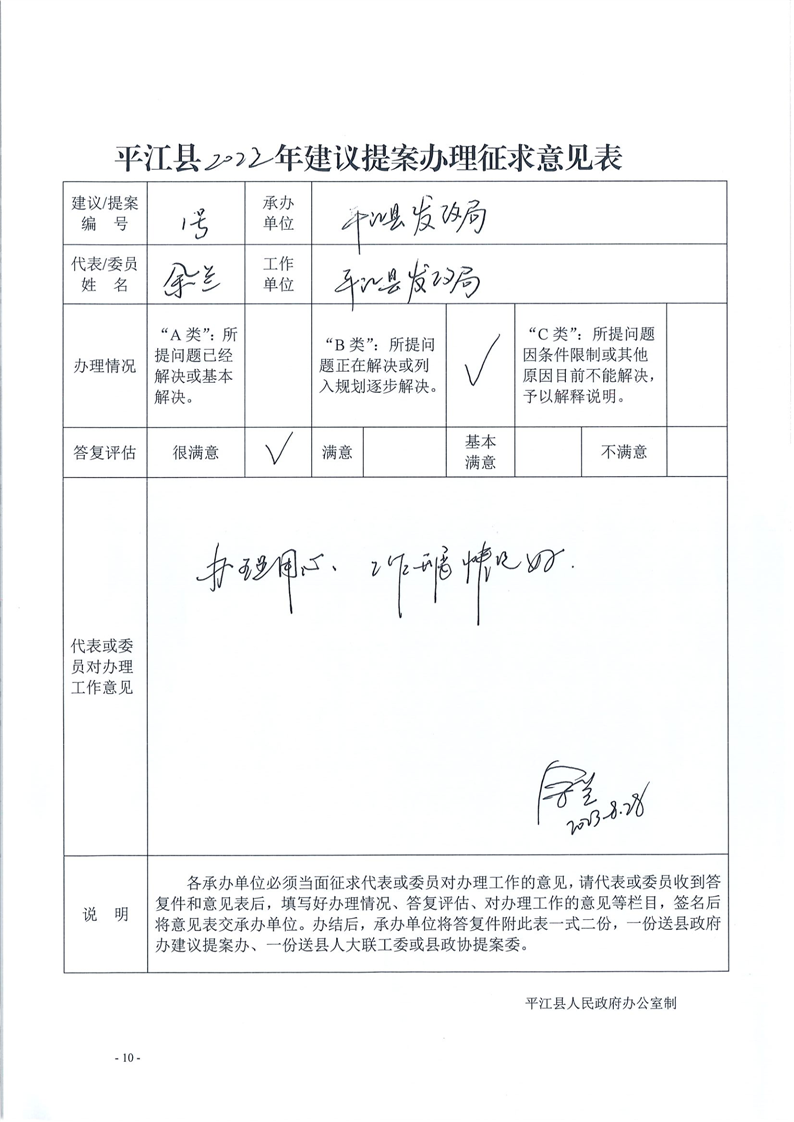 平江县2023年建议提案办理征求意见表
建议/提案
编 号
1号
承办
单位
平江县发改局
代表/委员
姓 名
余兰
工作
单位
平江县发改局
办理情况
“A 类”：所
提问题已经
解决或基本
解决。
“B 类”：所提问
题正在解决或列
入规划逐步解决。
√
“C 类”：所提问题
因条件限制或其他
原因目前不能解决，
予以解释说明。
答复评估
很满意
√
满意
基本
满意
不满意
代表或委
员对办理
工作意见
办理用心、工作开展情况好.
余兰
2023.8.28
说 明
各承办单位必须当面征求代表或委员对办理工作的意见，请代表或委员收到答
复件和意见表后，填写好办理情况、答复评估、对办理工作的意见等栏目，签名后
将意见表交承办单位。办结后，承办单位将答复件附此表一式二份，一份送县政府
办建议提案办、一份送县人大联工委或县政协提案委。
平江县人民政府办公室制
- 10 -